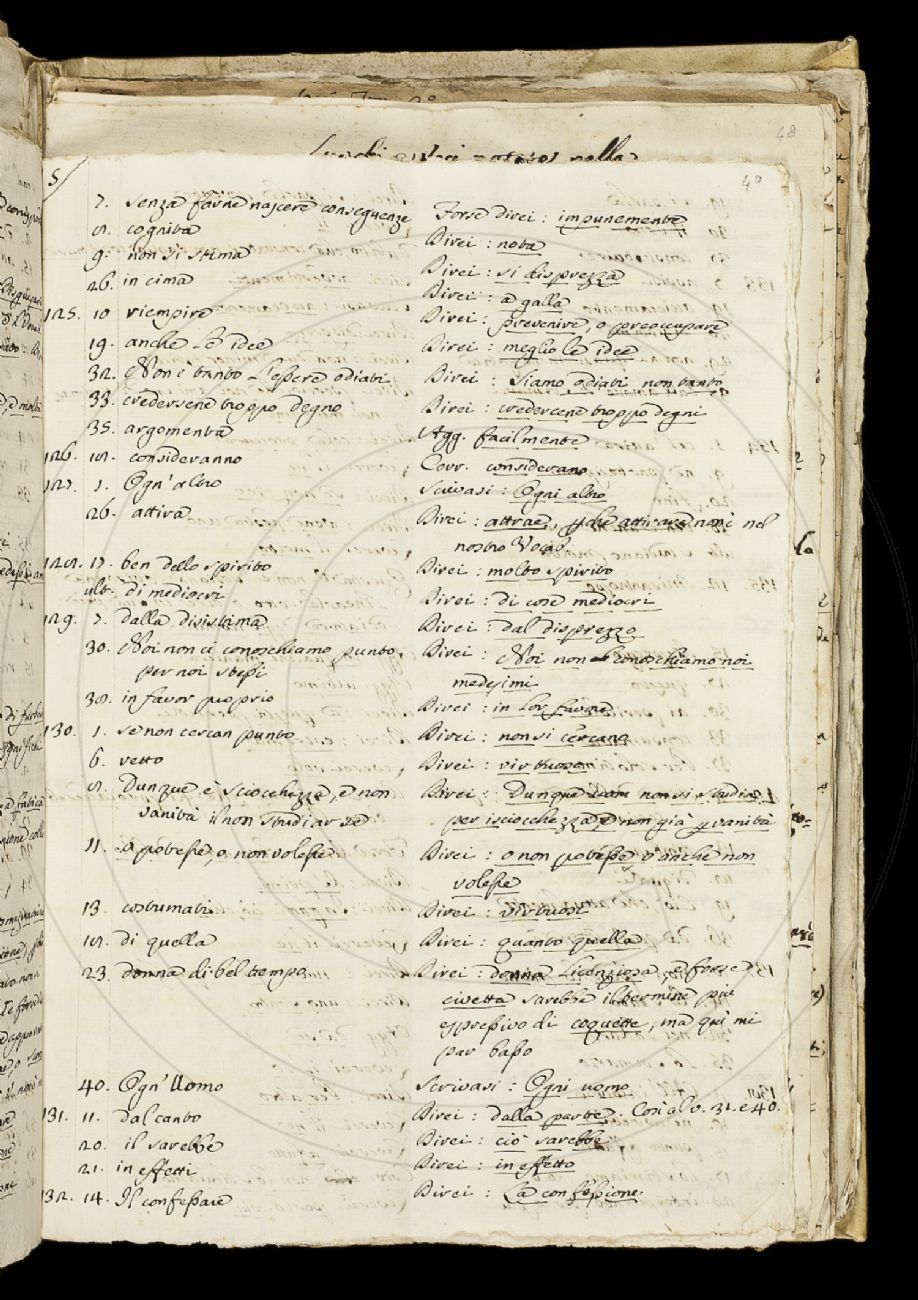 48
5/
40
7. senza farne nascere conseguenze Forse direi : impunemente
8. cognita Direi : nota
9. non si stima Direi : si disprezza
26. in cima Direi : a galla
125. 10 riempire Direi : prevenire, o preoccupare
19. anche le idee Direi : meglio le idee
32. Non è tanto l'essere odiati Direi : siamo odiati non tanto
33. credersene troppo degno Direi : credercene troppo degni
35. argomenta Agg. facilmente
126. 18. consideranno Corr. considerano
127. 1. Ogn'altro Scrivasi : Ogni altro
26. attira Direi : attrae, pche attirare non è nel
nostro Vocab.
128. 17. ben dello spirito Direi : molto spirito
ult. di mediocri Direi : di cose mediocri
129. 7. dalla disistima Direi : dal disprezzo
30. Noi non ci conoschiamo punto Direi : Noi non conoschiamo noi
per noi stessi medesimi
38. in favor proprio Direi : in lor favore
130. 1. se non cercan punto Direi : non si cercano
6. retto Direi : virtuoso
8. Dunque è sciocchezza, e non Direi : Dunque non si studia
vanità il non studiarse per isciocchezza, e non già p vanità
11. a potesse, o non volesse Direi : o non potesse o anche non
volesse
13. costumati Direi : virtuosi
18. di quella Direi : quanto quella
23. donna di bel tempo Direi : donna licenziosa, e forse
civetta sarebbe il termine più
espressivo di coquette, ma qui mi
par basso
40. Ogn'Uomo Scrivasi : Ogni uomo
131. 11. dal canto Direi : dalla parte. Così al v. 31. e 40.
20. il sarebbe Direi : ciò sarebbe
21. in effetti Direi : in effetto
132. 14. Il confessare Direi : La confessione.